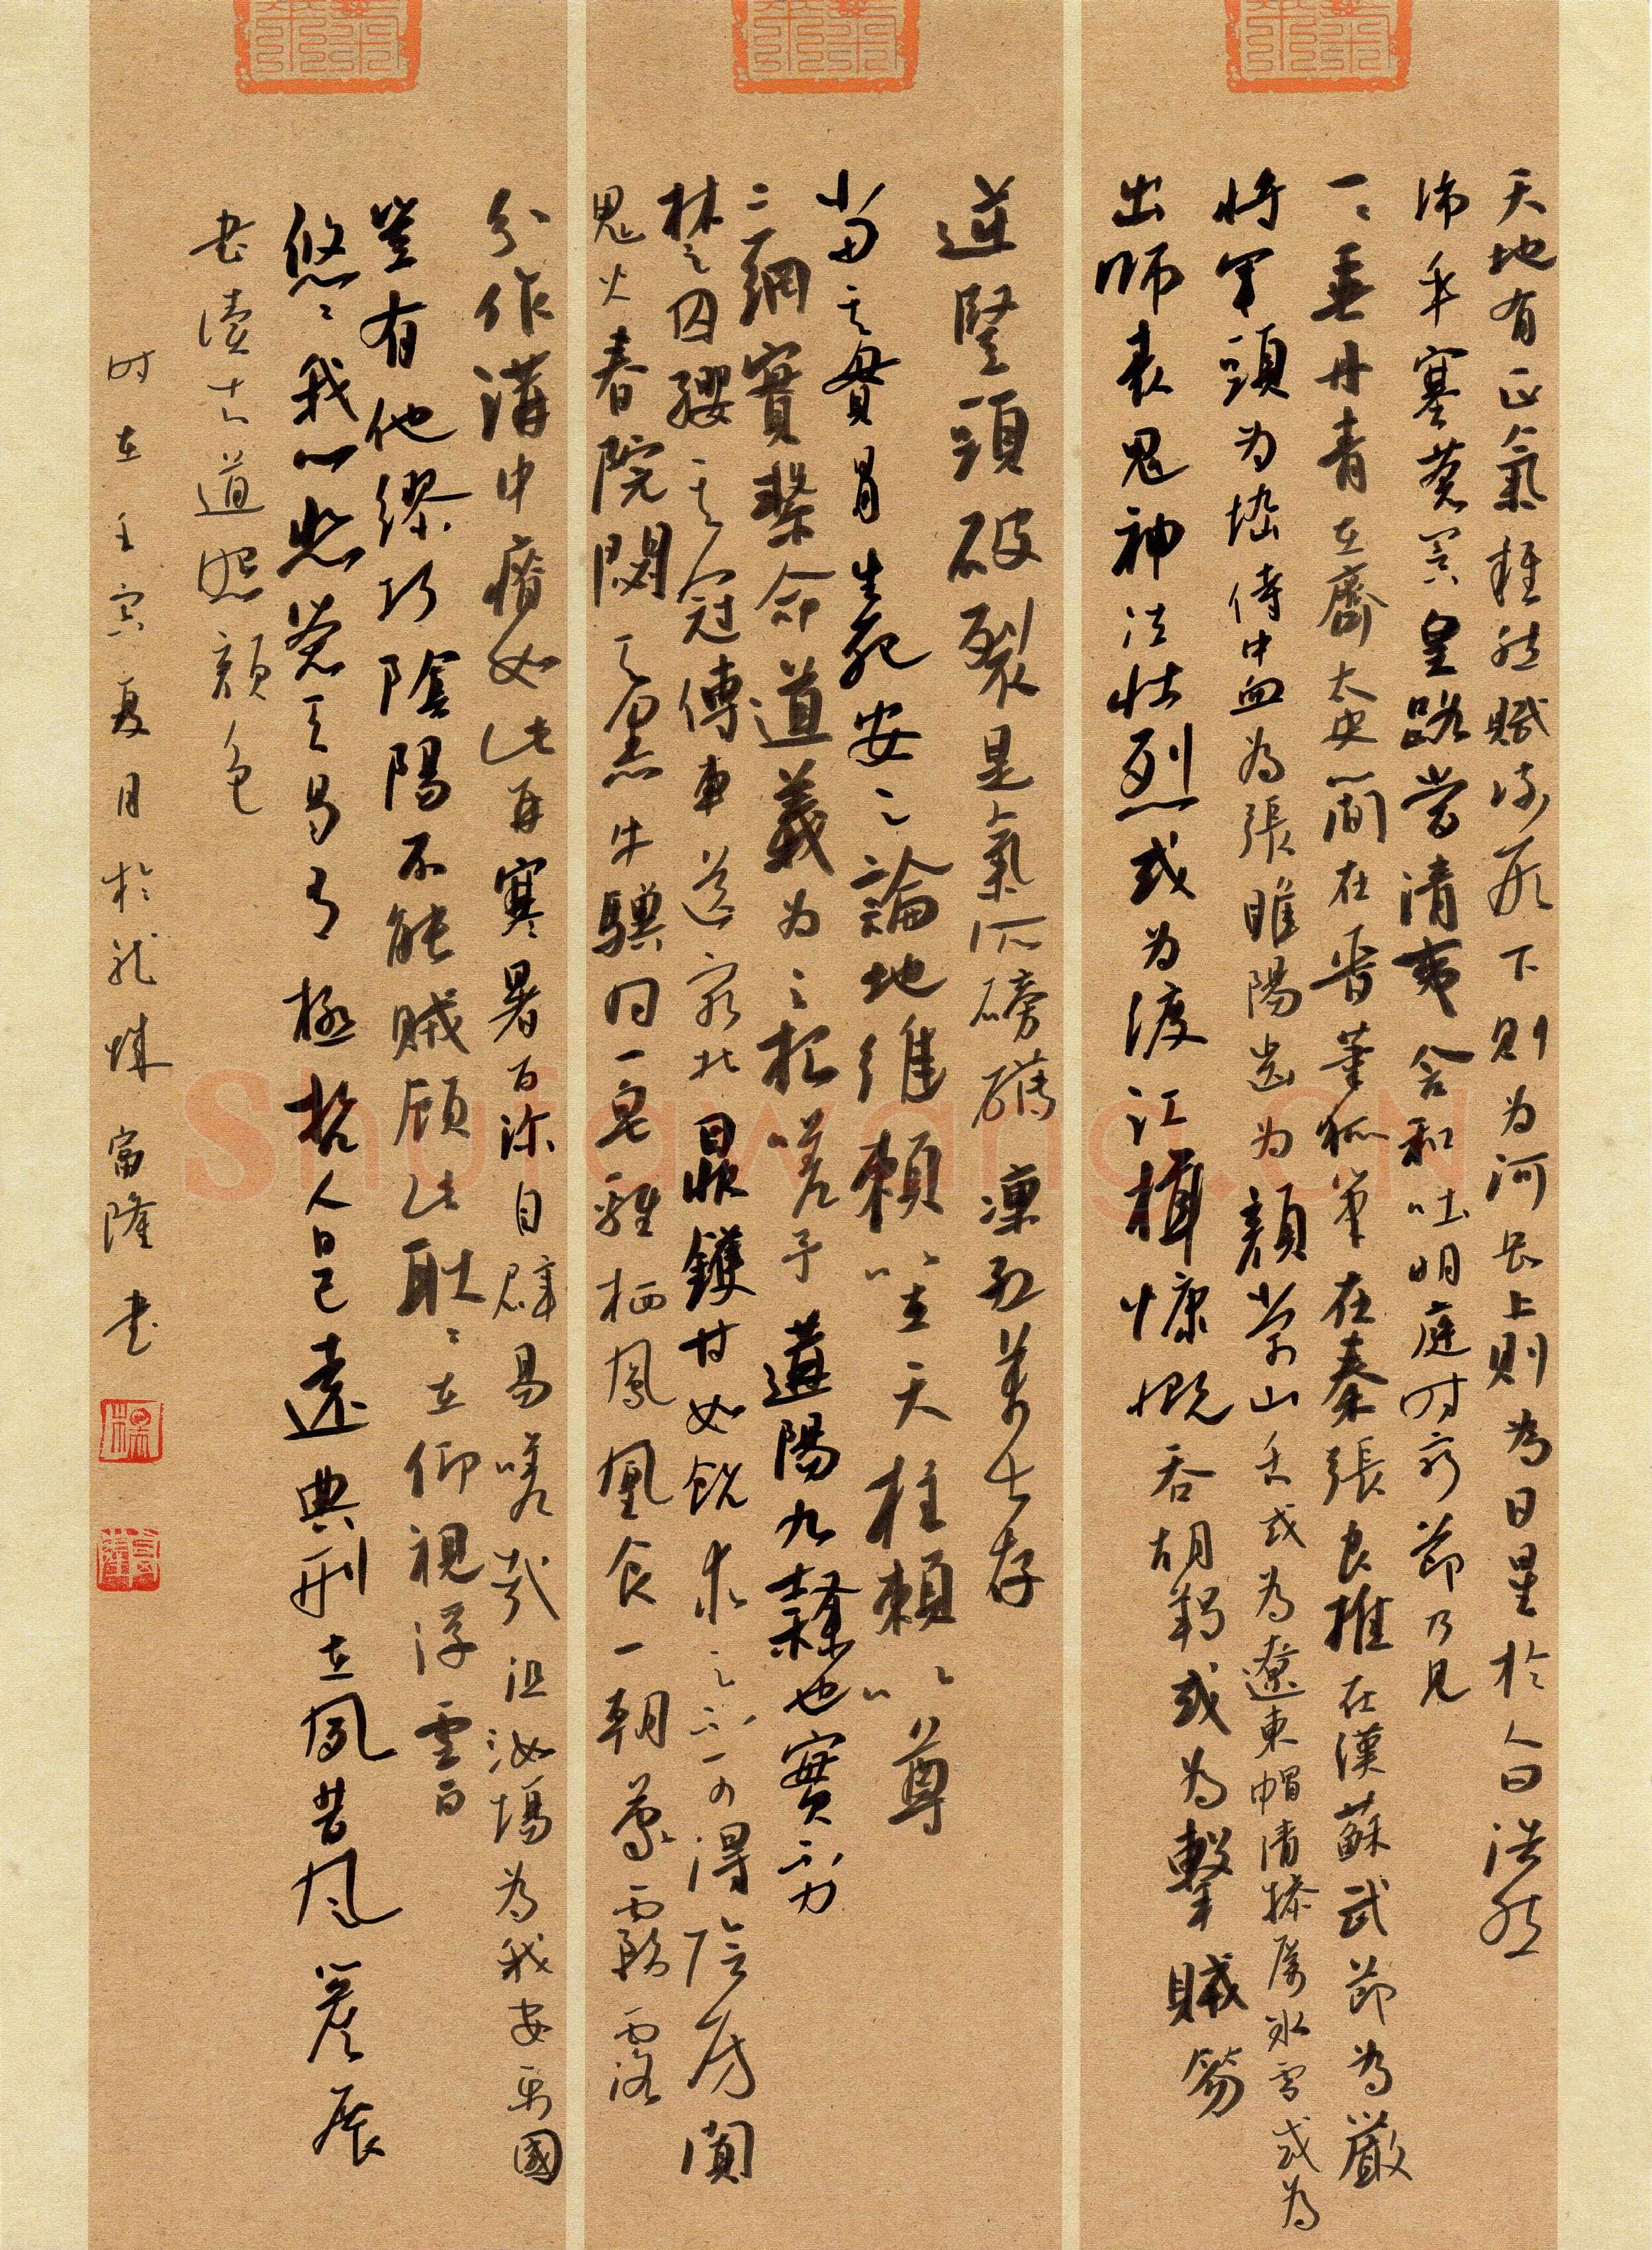 天地有正氣雜然賦流形下則为河岳上則為日星於人曰浩然
沛乎塞蒼冥皇路當清夷含和吐明庭时窮節乃見
一々垂丹青在齊太史簡在晉董狐筆在秦張良椎在漢蘇武節為嚴
將軍頭为嵇侍中血為張睢陽齒为顔常山舌或為遼東帽清操厲冰雪或为
出師表鬼神泣壯烈或为渡江楫慷慨吞胡羯或為擊賊笏
逆豎頭破裂是氣所磅礴凜烈萬古存
當其貫日月生死安足論地維賴以立天柱賴以尊
三綱實繫命道義为之根嗟予遘陽九隸也實不力
楚囚纓其冠傳車送窮北鼎鑊甘如飴求之不可得陰房闃
鬼火春院閟天黑牛驥同一皂雞栖鳳凰食一朝蒙霧露
分作溝中瘠如此再寒暑百沴自辟易嗟哉沮洳場為我安樂國
豈有他繆巧陰陽不能賊顧此耿々在仰視浮雲白
悠々我心悲蒼天曷有極哲人日已遠典刑在夙昔风簷展
書讀古道照顔色
时在壬寅夏月於龍城富隆書
Shufawang.CN